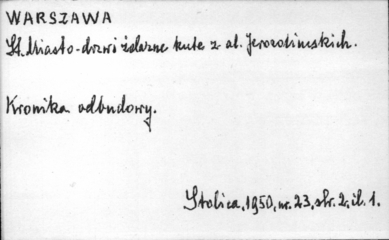 WARSZAWA
St. Miasto - drzwi żelazne kute z al. Jerozolimskich.
Kronika odbudowy.
Stolica, 1950, nr. 23, str. 2, il. 1.